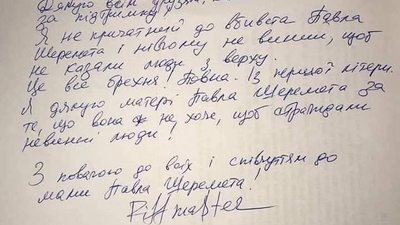 Дякую всім друзям,
за підтримку
Я не причатний до вбивства Павла
Шеремета і ні в чому не винний, щоб
не казали люди з верху.
Це все брехня! Повна. Із першої літери.
Я дякую матері Павла Шеремета за
те, що вона не хоче, щоб страждали
невинні люди!
З повагою до всіх і співчуттям до
мами Павла Шеремета!
Riffmaster